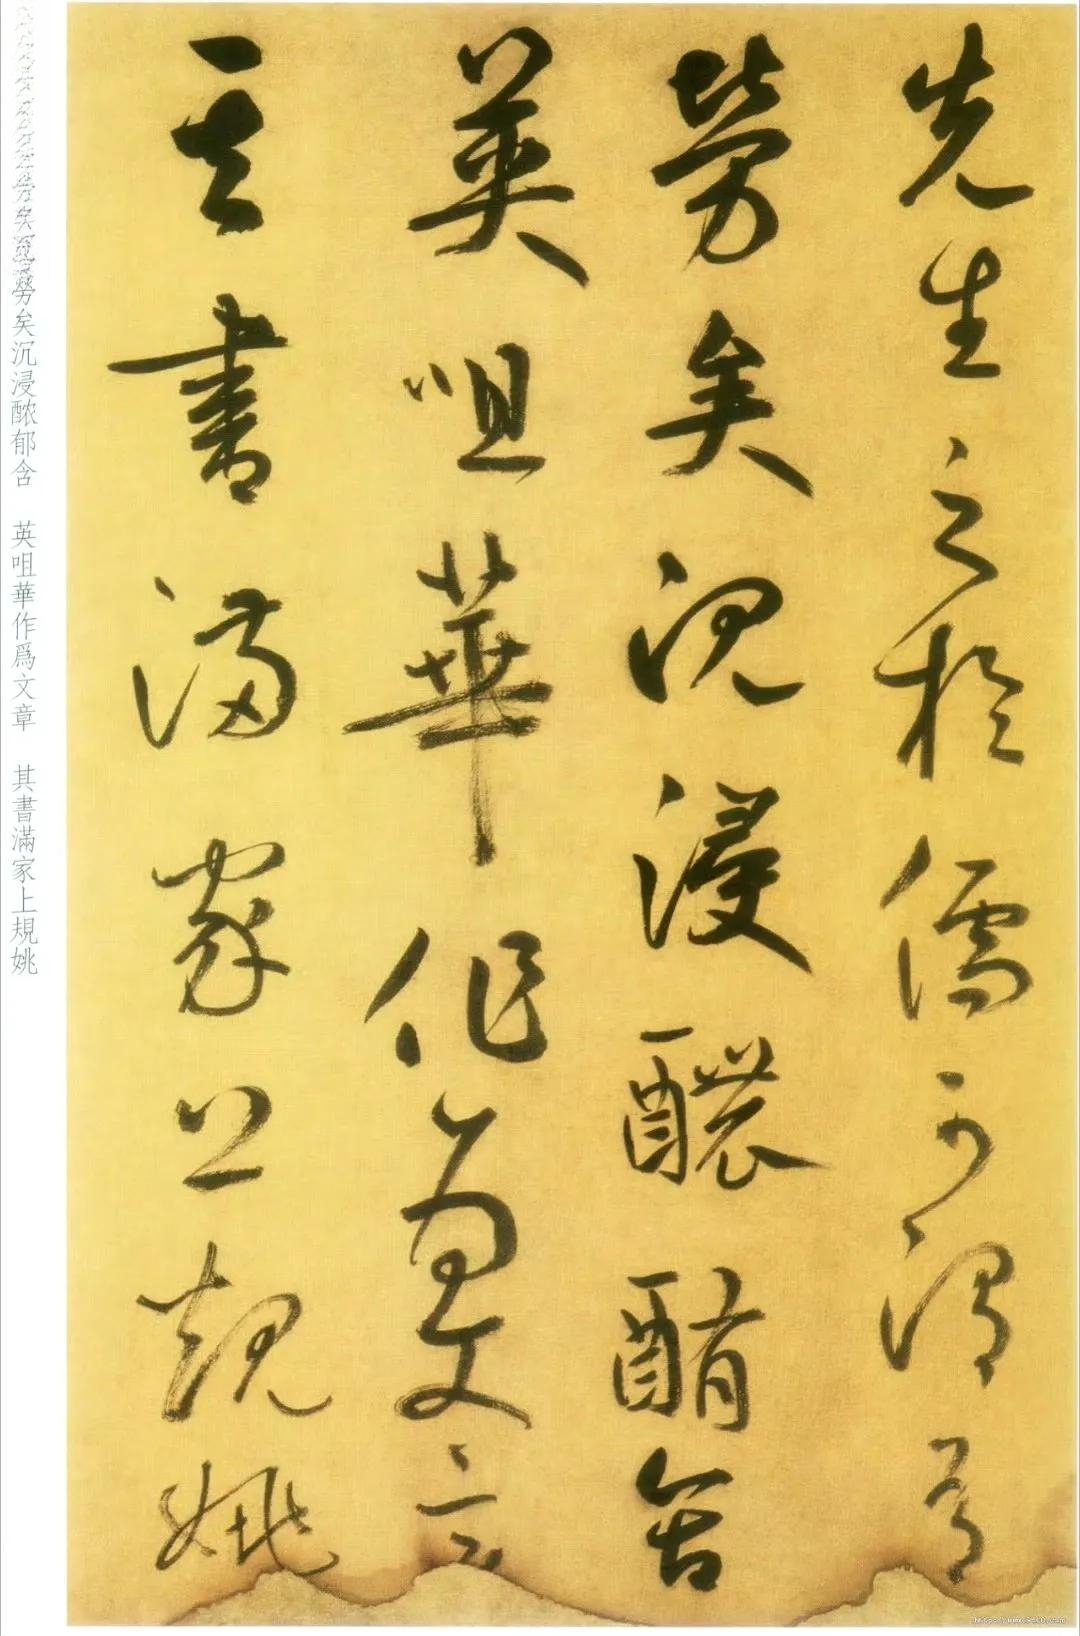 先生之於儒可謂有
勞矣沉浸醲酭含
英咀華作為文章
其書滿家上規姚
勞矣沉浸醲郁含 英咀華作爲文章 其書滿家上規姚